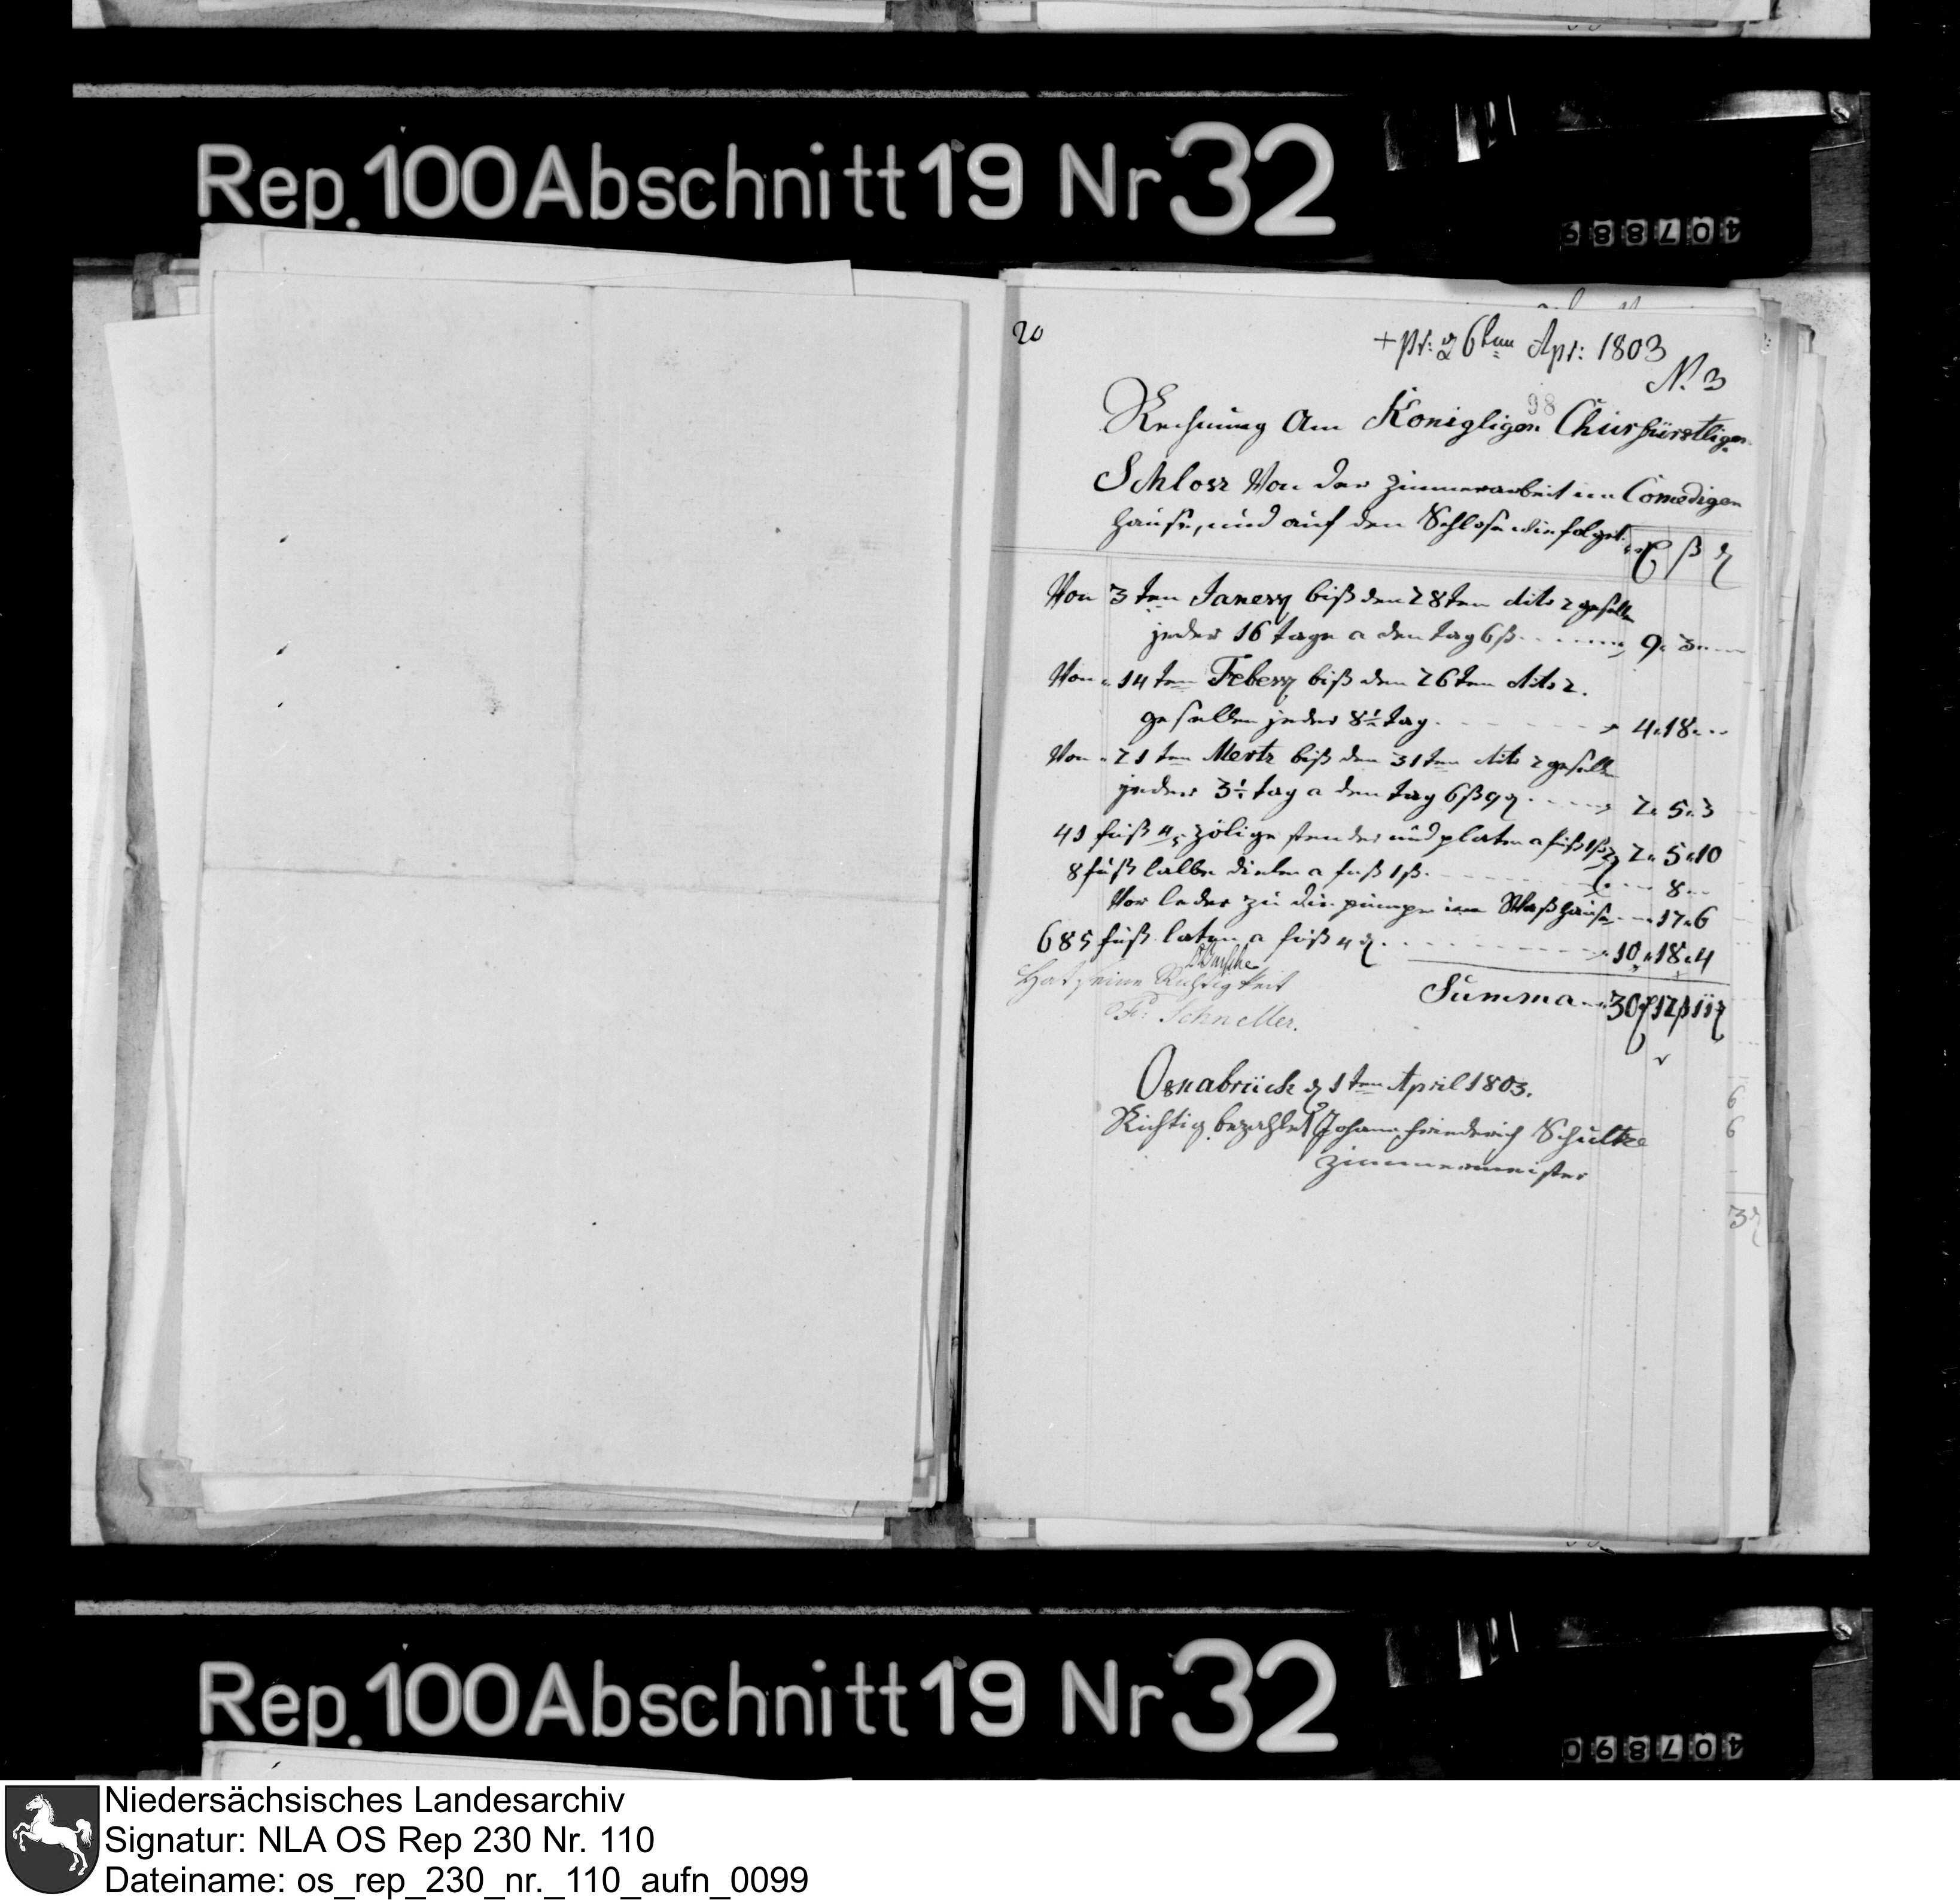 Rep. 100 Abschnitt 19 Nr 32
407889
20
+ pr: d 6ten Apr: 1803
N. 3
98
Rechnung Am Königligen Chürfürstligen
Schlosz Von der Zimmerarbeit im Comedigen
hause, und auf den Schlose wie folget.
rt ß d
Von 3 ten Janery biß den 28ten dito 2 gesellen
jeder 16 tage a den tag 6 ß 9 3
Von 14 ten Febery biß den 26ten dito 2.
gesellen jeder 8½ tag 4 18
Von 21 ten Mertz biß den 31ten dito 2 gesellen
jeder 3½ tag a den tag 6 ß 9 d 2 5 3
41 fuß zölige stender und platen a fuß 1 ß 2 5 10
8 fuß dielen a fuß 1 ß 8
Vor leder zu die pumpe im Waßhause 17 6
685 fuß laten a fuß 4 d 10 18 4
Hat seine Richtigkeit
Summa 30 rt 12 ß 11 d
Schneller.
Osnabrück d 1ten April 1803.
Richtig bezahlet Johann Friederich Schultze
Zimmermeister
6
6
3 d
Rep. 100 Abschnitt 19 Nr 32
407890
Niedersächsisches Landesarchiv
Signatur: NLA OS Rep 230 Nr. 110
Dateiname: os_rep_230_nr._110_aufn_0099